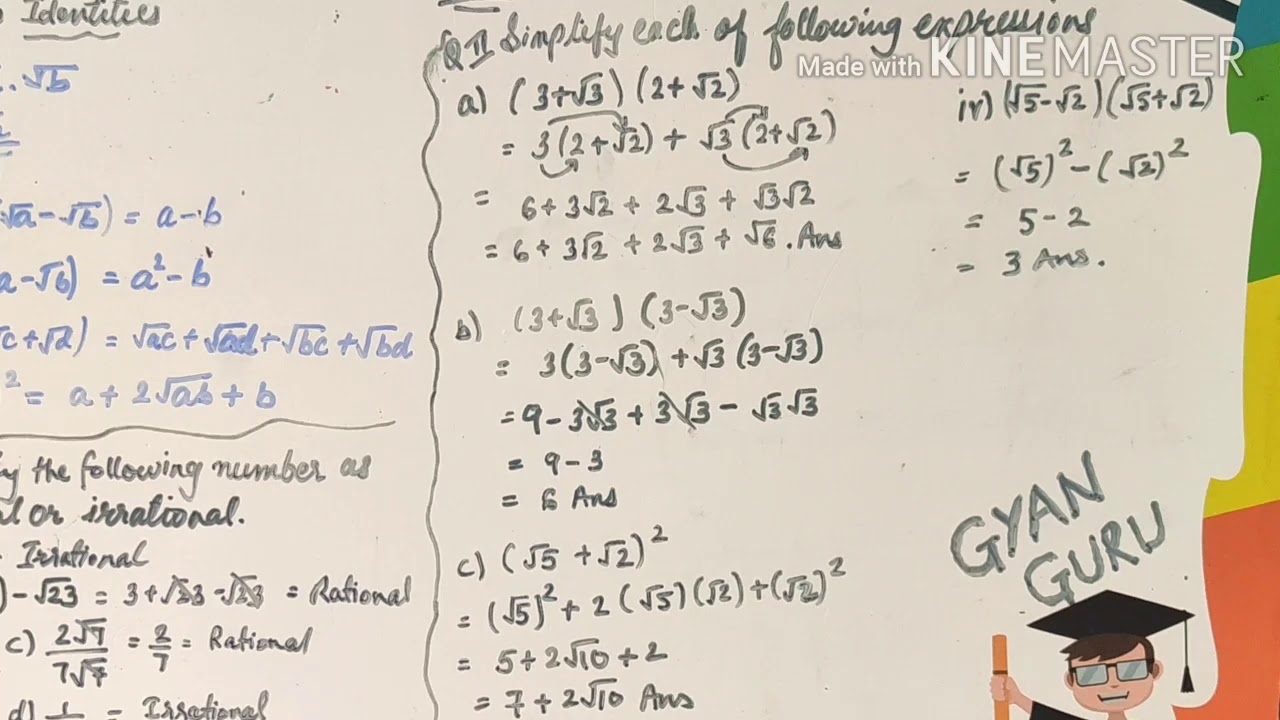 Identities
. √b
√a-√b) = a-b
a-√b) = a²-b
√c+√d) = √ac+√ad+√bc+√bd
² = a+2√ab+b
y the following number as
al or irrational.
Irrational
)-√23 = 3+√23-√23 = Rational
c) 2√7/7√7 = 2/7 = Rational
d) 1 = Irrational
Q II Simplify each of following expressions
Made with KINEMASTER
a) (3+√3) (2+√2)
= 3(2+√2) + √3(2+√2)
= 6+3√2 + 2√3 + √3√2
= 6+3√2 + 2√3 + √6. Ans
b) (3+√3) (3-√3)
= 3(3-√3) +√3 (3-√3)
= 9-3√3 + 3√3 - √3√3
= 9-3
= 6 Ans
c) (√5 +√2)²
= (√5)² + 2 (√5)(√2)+(√2)²
= 5+2√10 +2
= 7+2√10 Ans
iv) (√5-√2) (√5+√2)
= (√5)² - (√2)²
= 5-2
= 3 Ans.
GYAN
GURU